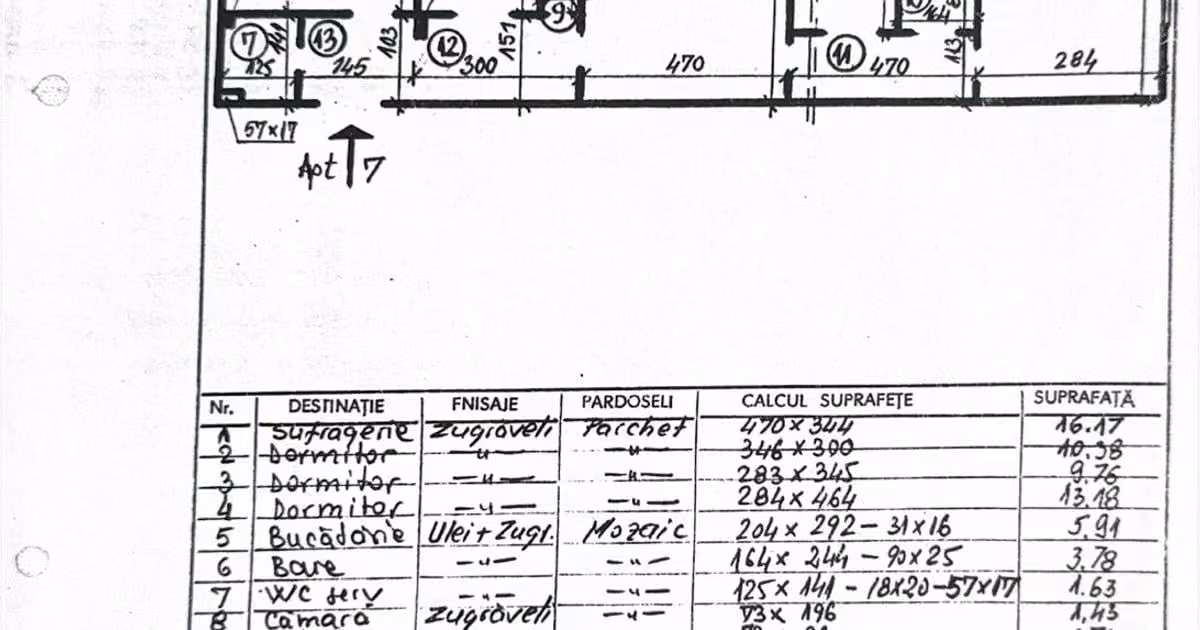 9 164
7 141 13 103 12 151 11 13
125 145 300 470 470 284
57×17
Apt 7
Nr. DESTINAȚIE FNISAJE PARDOSELI CALCUL SUPRAFEȚE SUPRAFAȚĂ
1 Sufragerie Zugrăveli Parchet 470×344 16.17
2 Dormitor —"— —"— 346×300 10.38
3 Dormitor —"— —"— 283×345 9.76
4 Dormitor —"— —"— 284×464 13.18
5 Bucădărie Ulei+Zugr. Mozaic 204×292-31×16 5.91
6 Baie —"— —"— 164×244-90×25 3.78
7 WC serv —"— —"— 125×141-18×20-57×17 1.63
8 Cămară Zugrăveli —"— 73×196 1,43